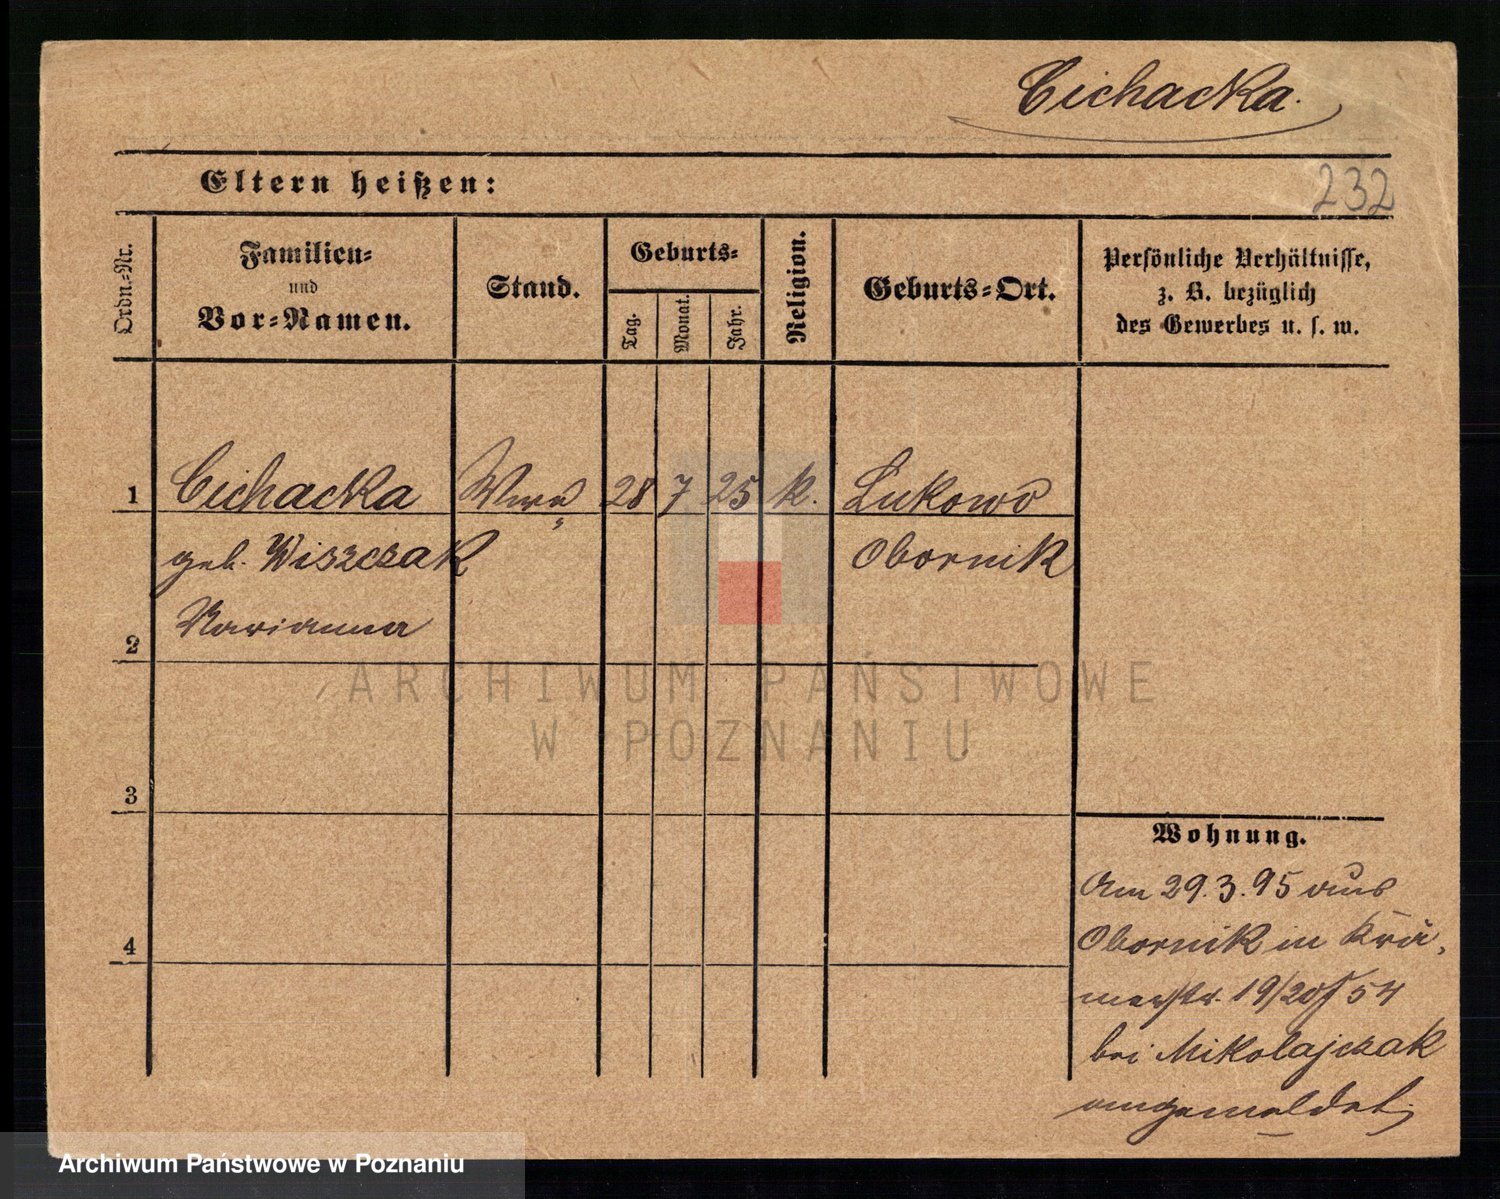 Cichacka.
Eltern heißen:
232
Ordn.-Nr.
Familien-
und
Vor-Namen.
Stand.
Geburts-
Tag.
Monat.
Jahr.
Religion.
Geburts-Ort.
Persönliche Verhältnisse,
z. B. bezüglich
des Gewerbes u. s. w.
1 Cichacka Wwe 28 7 25 k. Lukowo
geb. Wiszczak Obornik
Marianna
2
3
4
Wohnung.
Am 29.3.95 aus
Obornik in Krä-
merstr. 19/20 54
bei Mikolajczak
angemeldet.
ARCHIWUM PAŃSTWOWE
W POZNANIU
Archiwum Państwowe w Poznaniu